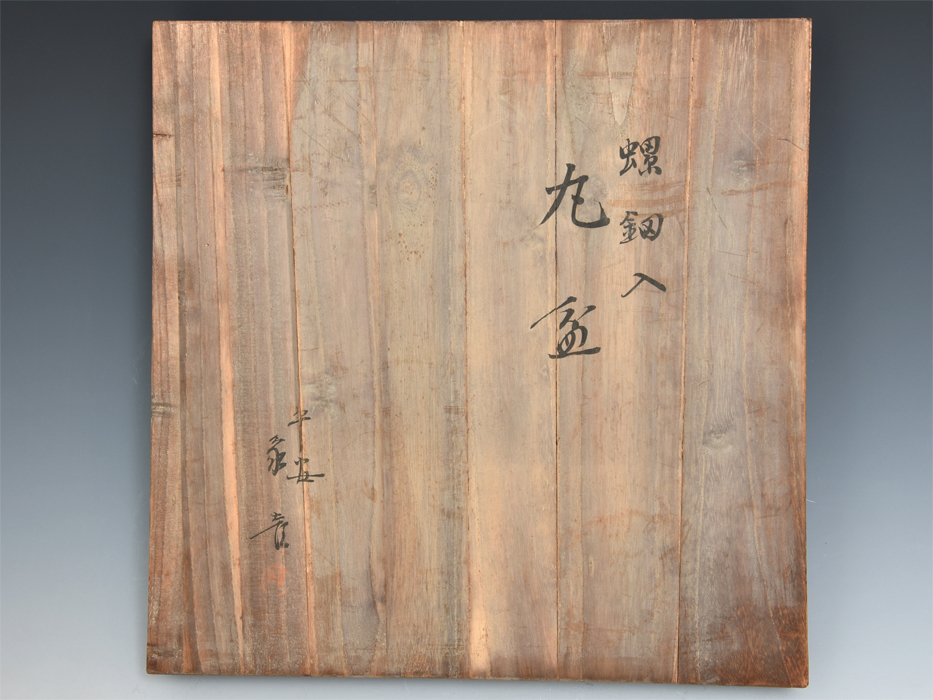 螺鈿入
丸盆
平安
象彦